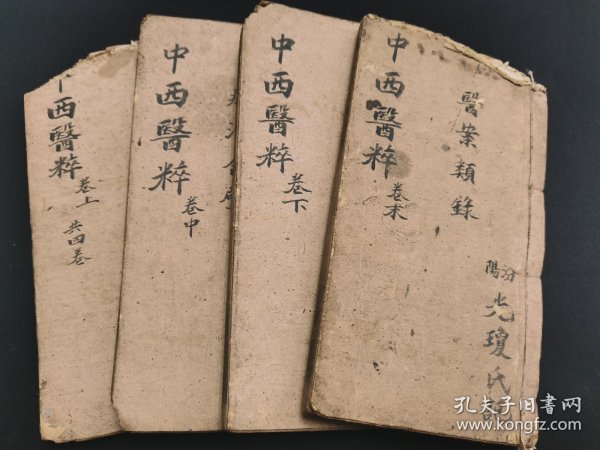 中西醫粹
卷上
共四卷
中西醫粹
卷中
中西醫粹
卷下
中西醫粹
卷末
醫案類錄
汾陽
光瓊氏
孔夫子旧书网